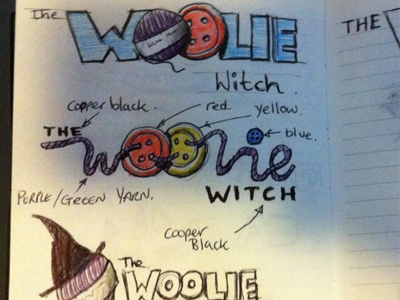 The WOOLIE
Witch.
THE
copper black.
red.
yellow.
THE woolie
blue.
WITCH
PURPLE/GREEN YARN.
Cooper Black
The
WOOLIE